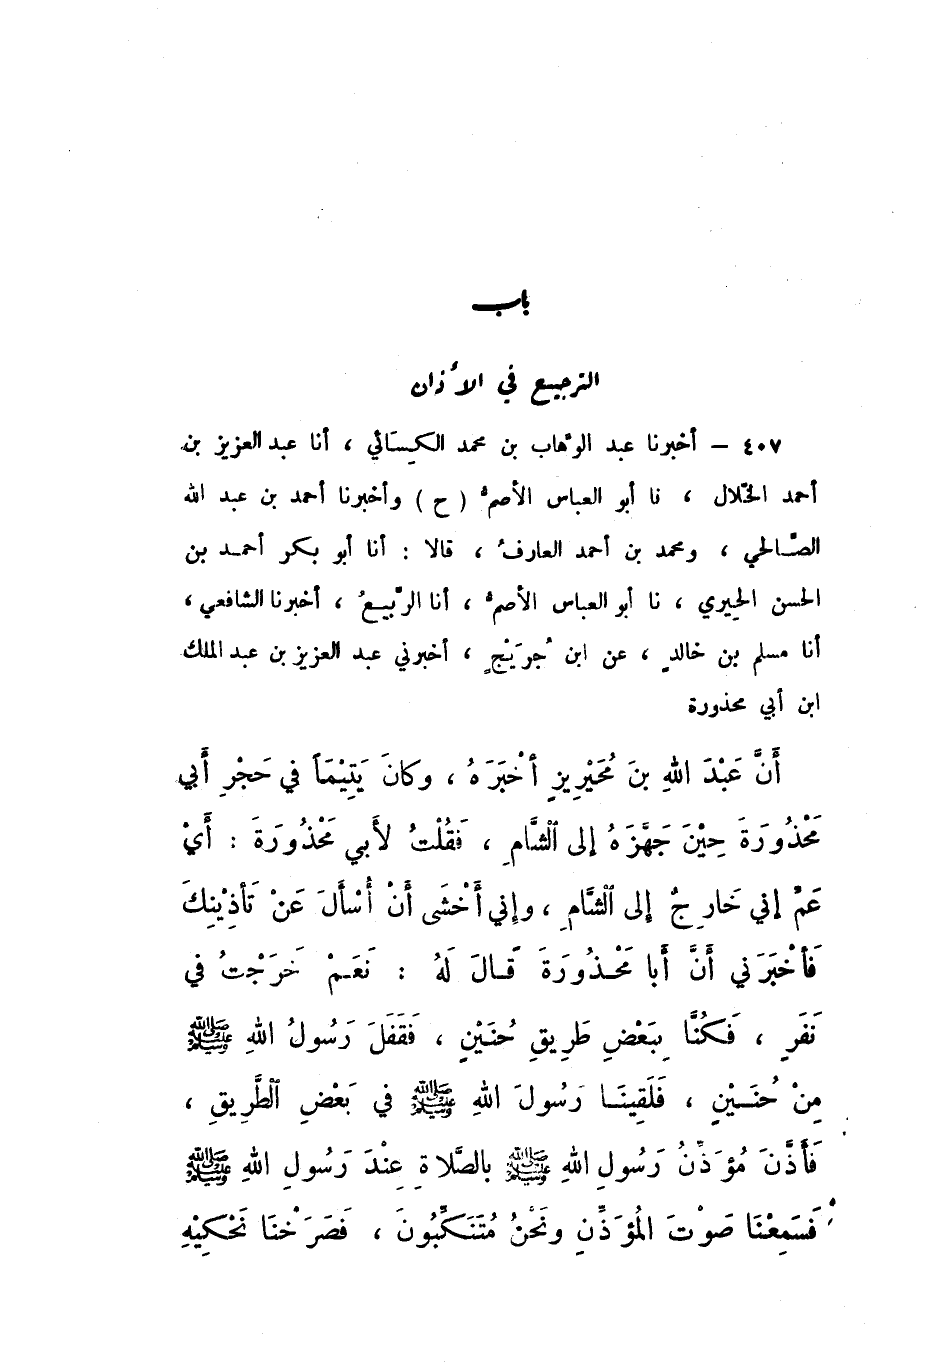 باب
الترجيع في الأذان
٤٠٧ – أخبرنا عبد الوهاب بن محمد الكِسَائي ، أنا عبد العزيز بن
أحمد الخلال ، نا أبو العباس الأصمُّ ( ح ) وأخبرنا أحمد بن عبد الله
الصَّالحي ، ومحمد بن أحمد العارفُ ، قالا : أنا أبو بكر أحمد بن
الحسن الحِيري ، نا أبو العباس الأصمُّ ، أنا الرَّبيعُ ، أخبرنا الشافعي ،
أنا مسلم بن خالدٍ ، عن ابن جُرَيْجٍ ، أخبرني عبد العزيز بن عبد الملك
ابن أبي محذورة
أَنَّ عَبْدَ اللهِ بنَ مُحَيْرِيزٍ أَخْبَرَهُ ، وكانَ يَتِيْمَاً في حَجْرِ أَبي
مَحْذُورَةَ حِيْنَ جَهَّزَهُ إلى الشَّامِ ، فَقُلْتُ لأَبي مَحْذُورَةَ : أَيْ
عَمُّ إني خَارِجٌ إلى الشَّامِ ، وإني أَخْشَى أَنْ أُسْأَلَ عَنْ تَأْذِيْنِكَ
فَأَخْبَرَني أَنَّ أَبا مَحْذُورَةَ قَالَ لَهُ : نَعَمْ خَرَجْتُ في
نَفَرٍ ، فَكُنَّا بِبَعْضِ طَرِيقِ حُنَيْنٍ ، فَقَفَلَ رَسُولُ اللهِ ﷺ
مِنْ حُنَيْنٍ ، فَلَقِينَا رَسُولَ اللهِ ﷺ في بَعْضِ الطَّرِيقِ ،
فَأَذَّنَ مُؤَذِّنُ رَسُولِ اللهِ ﷺ بالصَّلاةِ عِنْدَ رَسُولِ اللهِ ﷺ
فَسَمِعْنَا صَوْتَ المُؤَذِّنِ ونَحْنُ مُتَنَكِّبُونَ ، فَصَرَخْنَا نَحْكِيْهِ